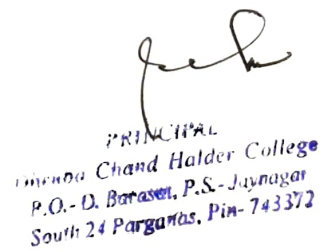 PRINCIPAL
Chand Halder College
P.O.- D. Barasat, P.S.- Jaynagar
South 24 Parganas, Pin- 743372